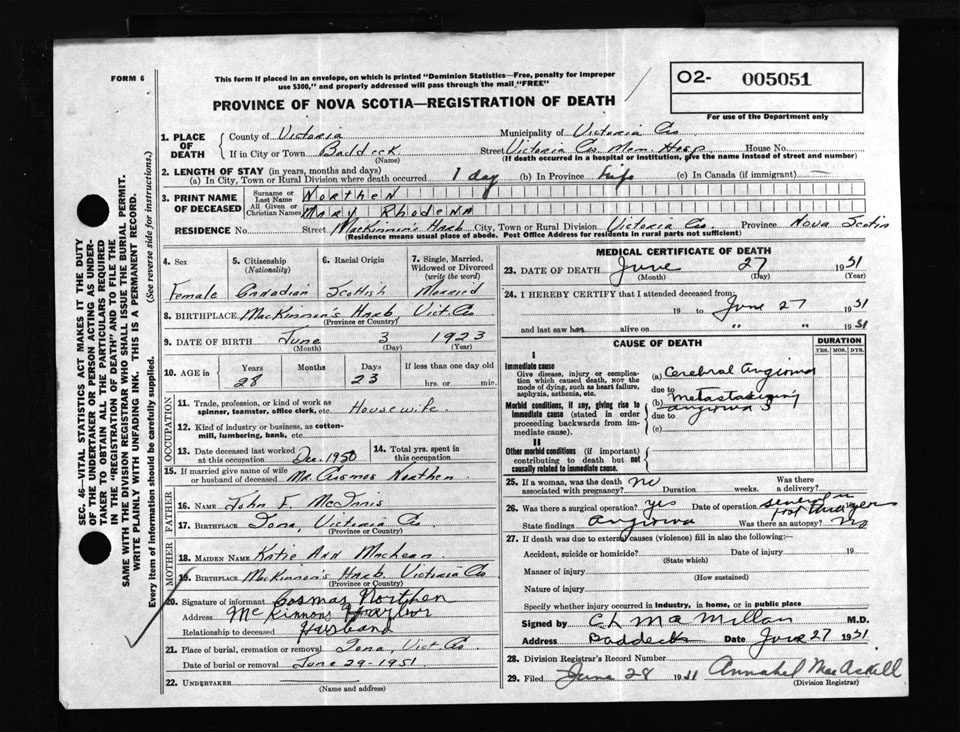 FORM 6
This form if placed in an envelope, on which is printed "Dominion Statistics—Free, penalty for improper
use $300," and properly addressed will pass through the mail "FREE"
O2- 005051
For use of the Department only
PROVINCE OF NOVA SCOTIA—REGISTRATION OF DEATH
1. PLACE OF DEATH
County of Victoria Municipality of Victoria Co
If in City or Town Baddeck Street Victoria Co Mem. Hosp House No.
(Name) (If death occurred in a hospital or institution, give the name instead of street and number)
2. LENGTH OF STAY (in years, months and days)
(a) In City, Town or Rural Division where death occurred 1 day (b) In Province Life (c) In Canada (if immigrant) —
3. PRINT NAME OF DECEASED
Surname or Last Name NORTHEN
All Given or Christian Names MARY RHODENA
RESIDENCE No. Street MacKinnen's Harb City, Town or Rural Division Victoria Co. Province Nova Scotia
(Residence means usual place of abode. Post Office Address for residents in rural parts not sufficient)
4. Sex Female
5. Citizenship (Nationality) Canadian
6. Racial Origin Scottish
7. Single, Married, Widowed or Divorced (write the word) Married
8. BIRTHPLACE MacKinnen's Harb, Vict Co
(Province or Country)
9. DATE OF BIRTH June 3 1923
(Month) (Day) (Year)
10. AGE in Years 28 Months Days 23 If less than one day old hrs. or min.
OCCUPATION
11. Trade, profession, or kind of work as spinner, teamster, office clerk, etc. Housewife
12. Kind of industry or business, as cotton-mill, lumbering, bank, etc.
13. Date deceased last worked at this occupation Dec. 1950
14. Total yrs. spent in this occupation
15. If married give name of wife or husband of deceased Mr. Cosmos Northen
FATHER
16. NAME John F. McInnis
17. BIRTHPLACE Iona, Victoria Co
MOTHER
18. MAIDEN NAME Katie Ann MacLean
19. BIRTHPLACE MacKinnen's Harb Victoria Co
(Province or Country)
20. Signature of informant Cosmas Northen
Address McKinnons Harbor
Relationship to deceased Husband
21. Place of burial, cremation or removal Iona, Vict Co
Date of burial or removal June 29-1951
22. UNDERTAKER
(Name and address)
MEDICAL CERTIFICATE OF DEATH
23. DATE OF DEATH June 27 1951
(Month) (Day) (Year)
24. I HEREBY CERTIFY that I attended deceased from:
19 to June 27 1951
and last saw h alive on " " 1951
CAUSE OF DEATH
DURATION
YRS. MOS. DYS.
I
Immediate cause
Give disease, injury or complication which caused death, NOT the mode of dying, such as heart failure, asphyxia, asthenia, etc.
(a) Cerebral Angioma
due to
Morbid conditions, if any, giving rise to immediate cause (stated in order proceeding backwards from immediate cause).
(b) Metastasizing angioma
due to
(c)
II
Other morbid conditions (if important) contributing to death but not causally related to immediate cause.
25. If a woman, was the death associated with pregnancy? no Duration weeks Was there a delivery?
26. Was there a surgical operation? yes Date of operation several in
State findings Angioma Was there an autopsy? No
27. If death was due to external causes (violence) fill in also the following:—
Accident, suicide or homicide? Date of injury 19
(State which)
Manner of injury
(How sustained)
Nature of injury
Specify whether injury occurred in industry, in home, or in public place
Signed by C L MacMillan M.D.
Address Baddeck Date June 27 1951
28. Division Registrar's Record Number
29. Filed June 28 1951 Annabel MacAskill
(Division Registrar)
SEC. 46—VITAL STATISTICS ACT MAKES IT THE DUTY
OF THE UNDERTAKER OR PERSON ACTING AS UNDER-
TAKER TO OBTAIN ALL THE PARTICULARS REQUIRED
IN THE "REGISTRATION OF DEATH" AND TO FILE THE
SAME WITH THE DIVISION REGISTRAR WHO SHALL ISSUE THE BURIAL PERMIT.
WRITE PLAINLY WITH UNFADING INK. THIS IS A PERMANENT RECORD.
Every item of information should be carefully supplied. (See reverse side for instructions.)